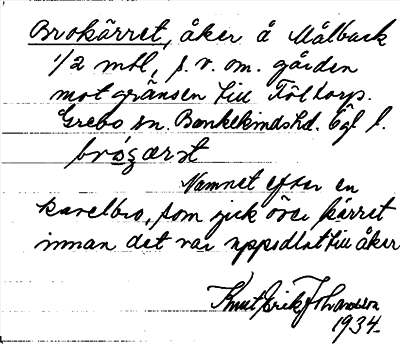 Brokärret, åker å Målback
1/2 mtl, s. v. om. gården
mot gränsen till Föltorps.
Grebo sn. Bankekindshd. Ögl l.
Namnet efter en
kavelbro, som gick över kärret
innan det var uppodlat till åker
Knut Erik Johansson
1934.